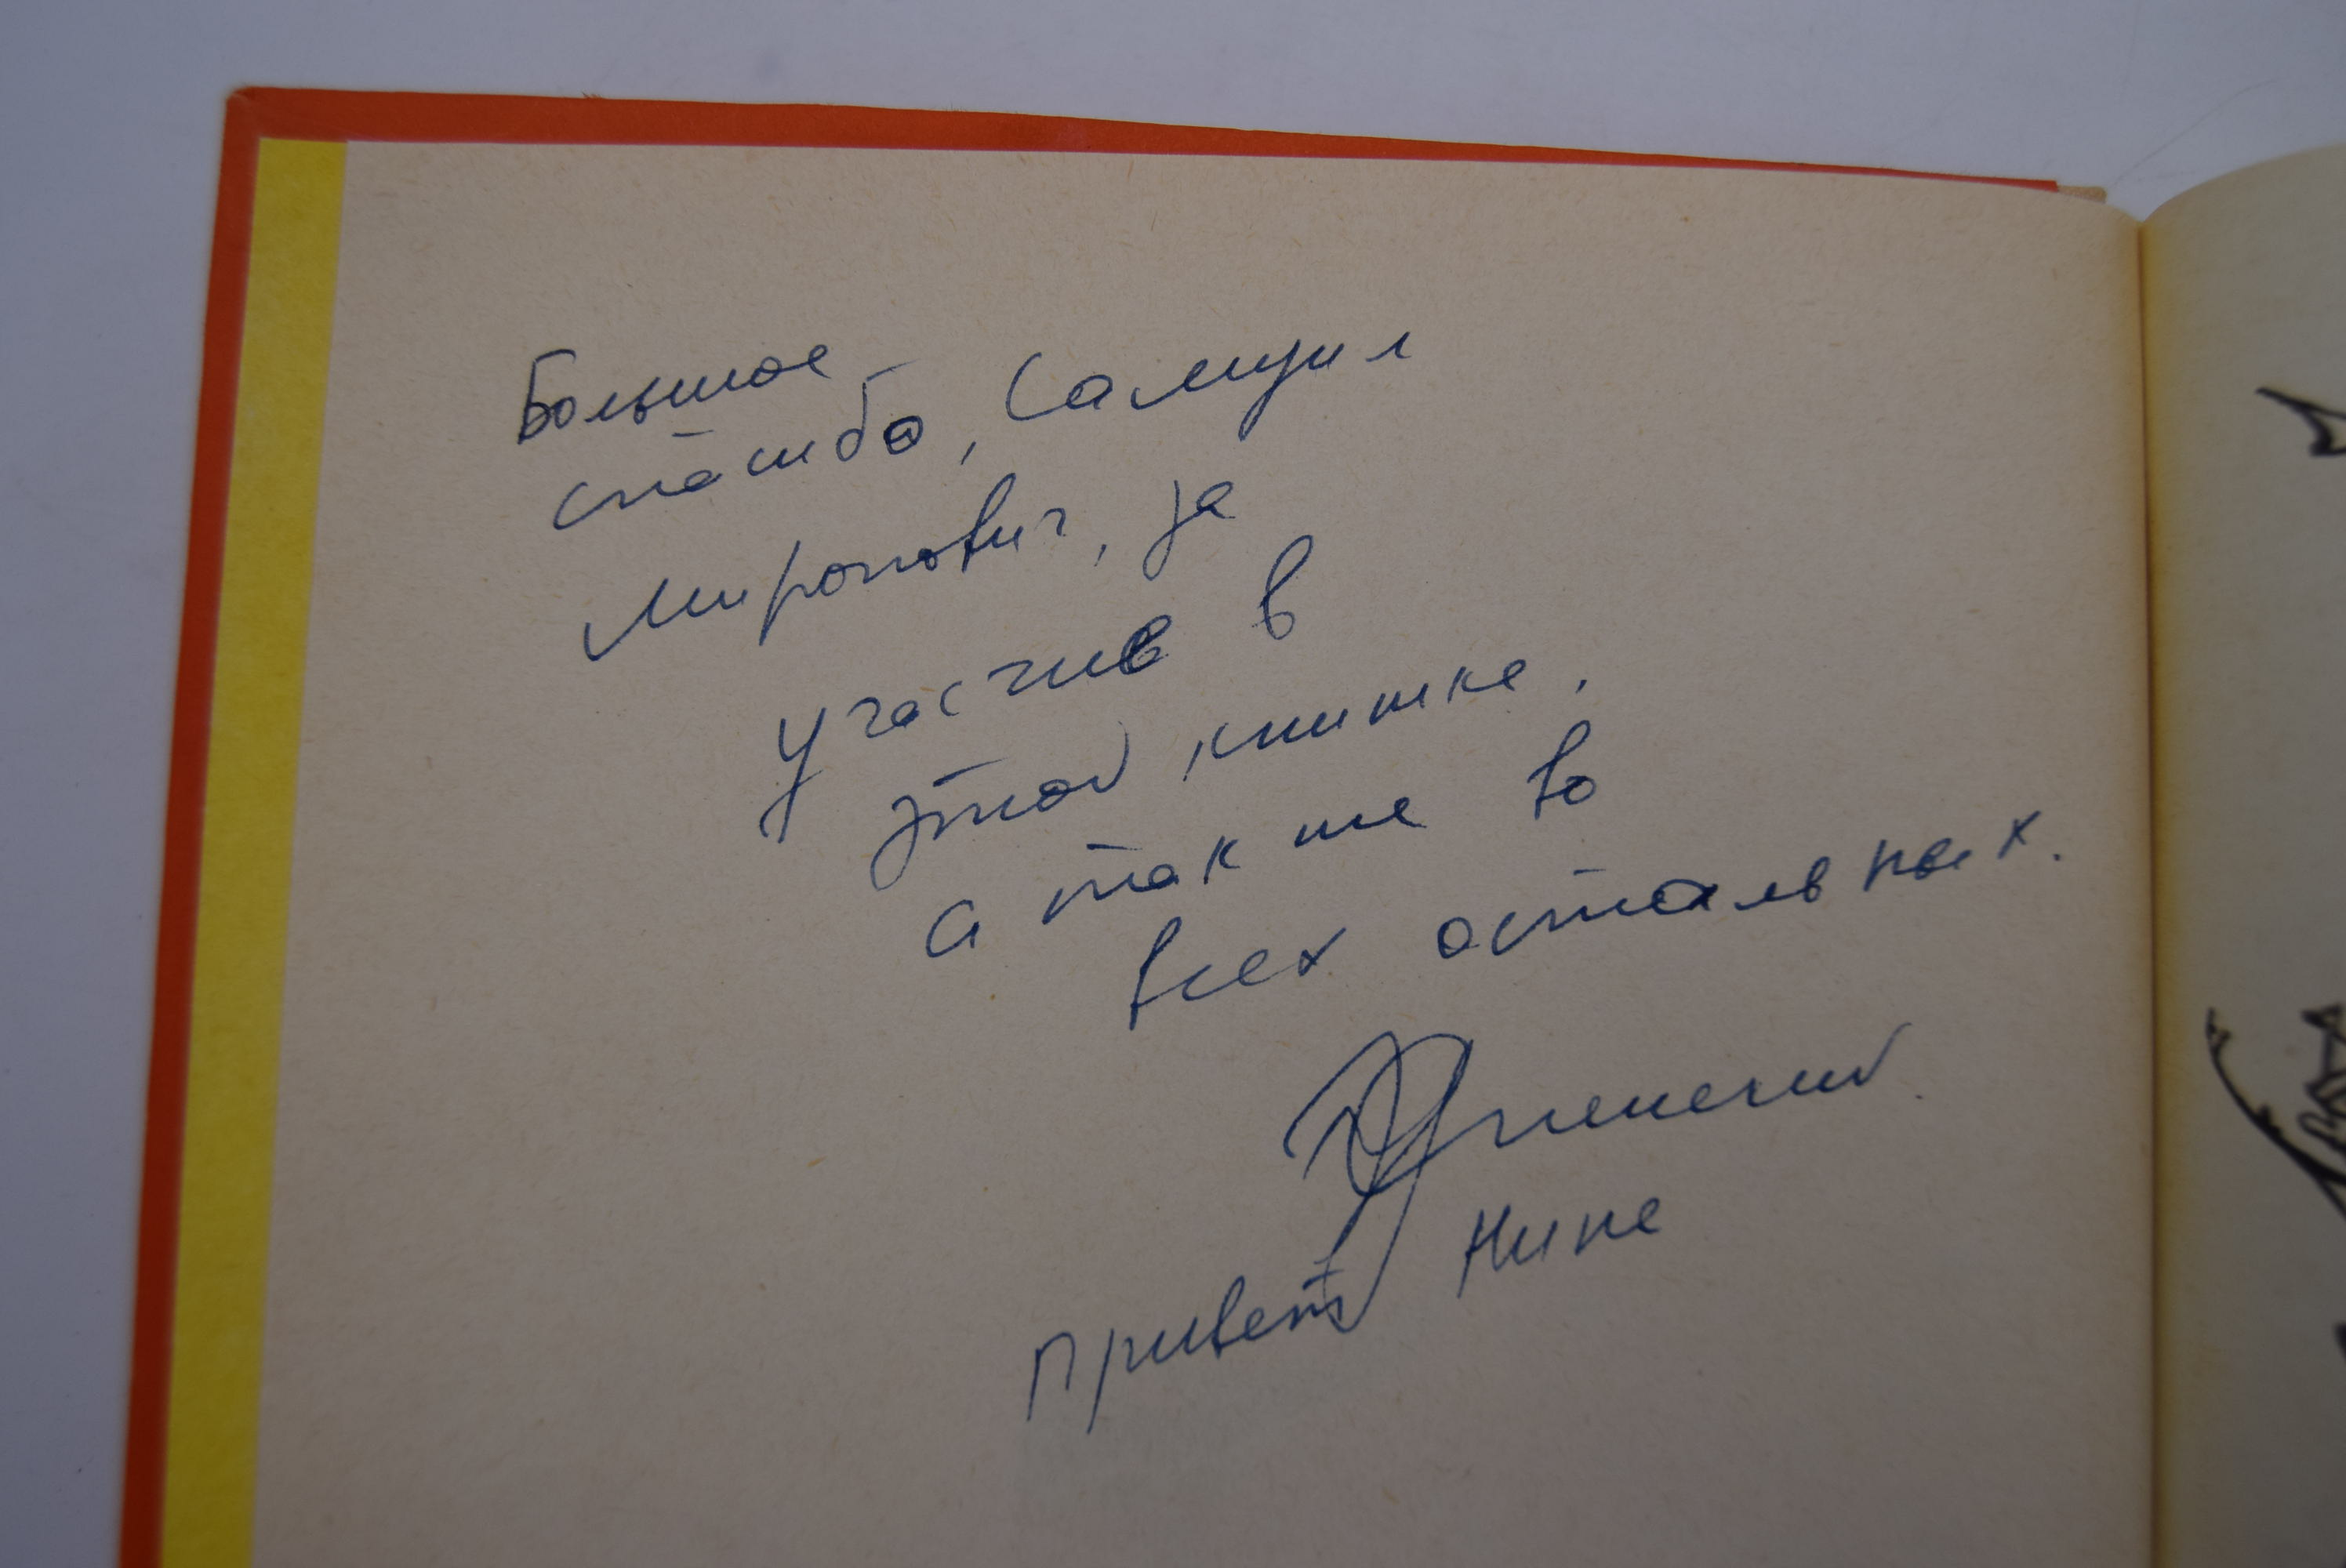 Большое
спасибо, Самуил
Миронович, за
участие в
этой книжке,
а также во
всех остальных.
Привет Нине